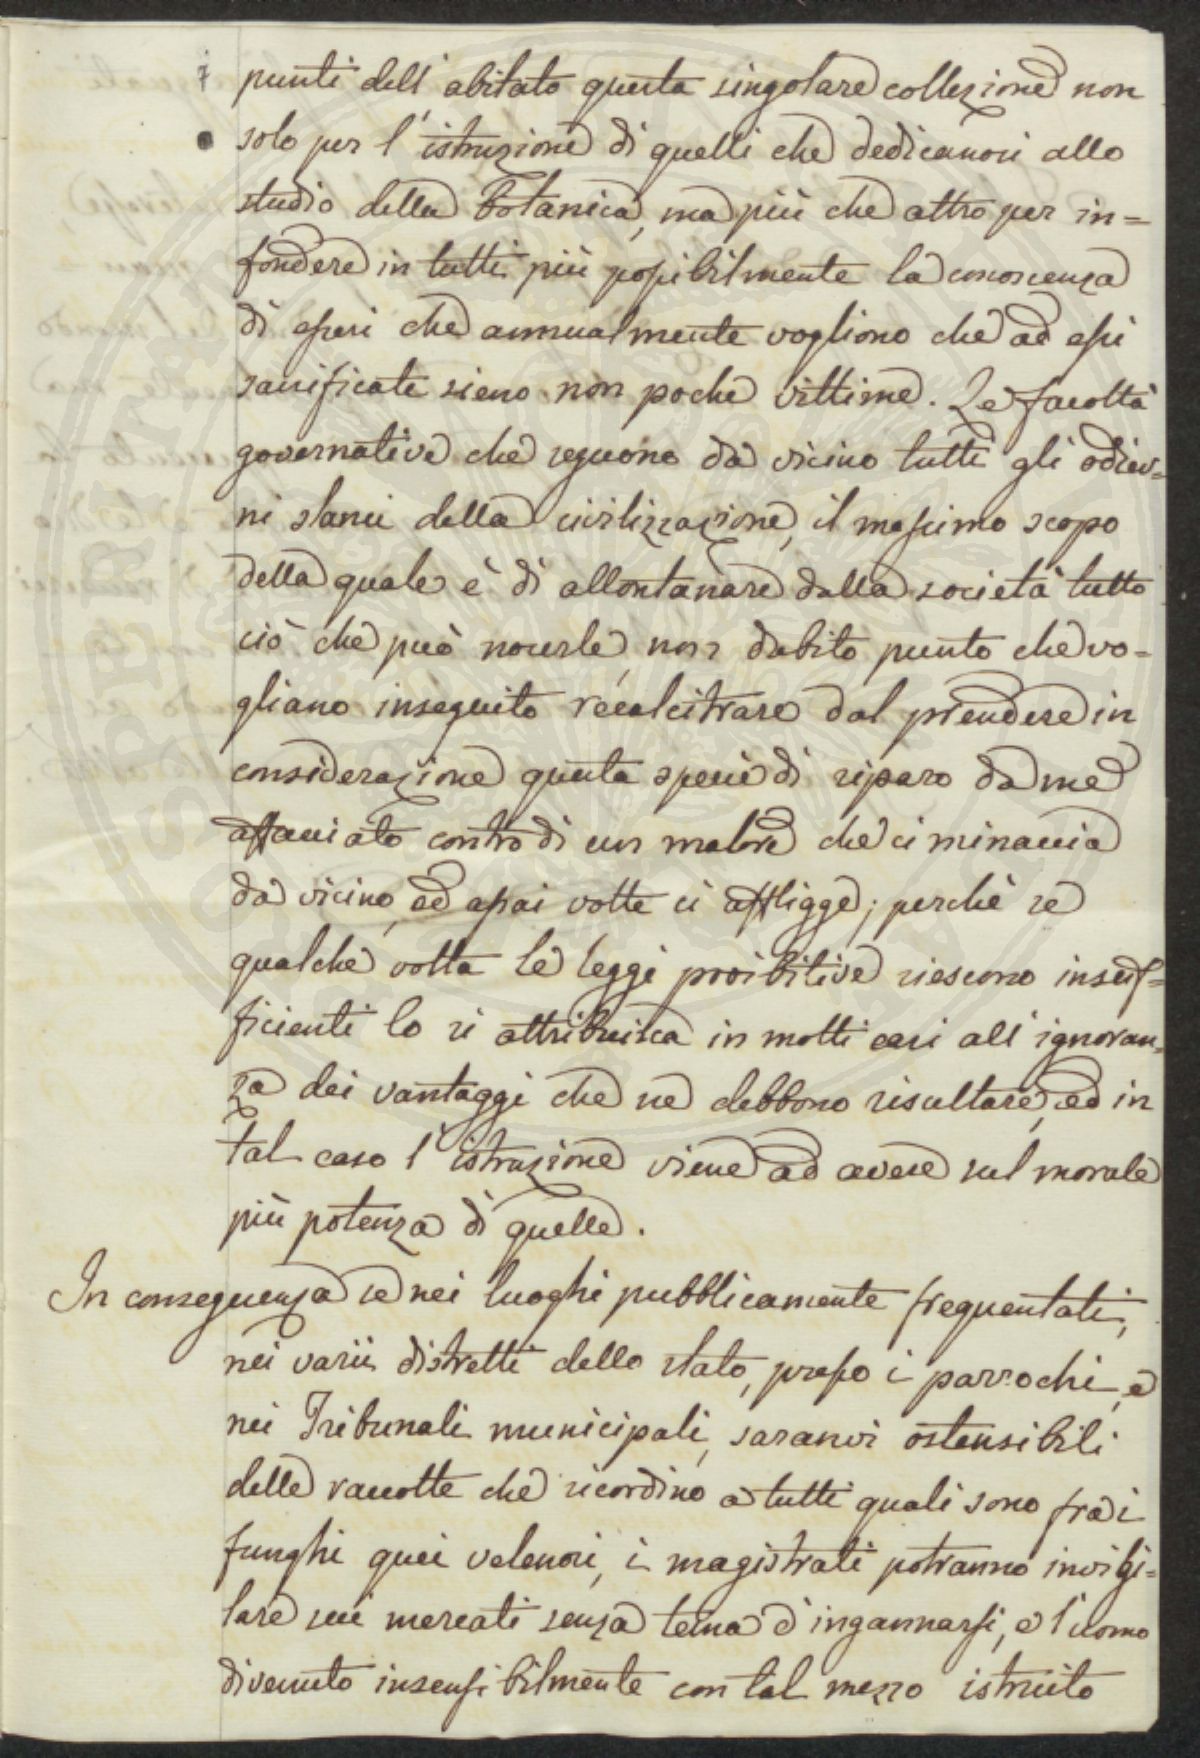 punti dell'abitato questa singolare collezione non
solo per l'istruzione di quelli che dedicansi allo
studio della Botanica, ma più che altro per in=
fondere in tutti più possibilmente la conoscenza
di esseri che annualmente vogliono che ad essi
sacrificate sieno non poche vittime. Le facoltà
governative che seguono da vicino tutti gli odier=
ni slanci della civilizzazione, il massimo scopo
della quale è di allontanare dalla società tutto
ciò che può nocerle, non dubito punto che vo=
gliano inseguito recalcitrare dal prendere in
considerazione questa specie di riparo da me
affacciato contro di un malore che ci minaccia
da vicino, ed assai volte ci affligge; perchè se
qualche volta le leggi proibitive riescono insuf=
ficienti lo si attribuisca in molti casi all'ignoran=
za dei vantaggi che ne debbono risultare, ed in
tal caso l'istruzione viene ad avere sul morale
più potenza di quelle.
In conseguenza se nei luoghi pubblicamente frequentati,
nei varii distretti dello stato, presso i parrochi, e
nei Tribunali municipali, saranvi ostensibili
delle raccolte che ricordino a tutti quali sono fra i
funghi quei velenosi, i magistrati potranno invigi=
lare sui mercati senza tema d'ingannarsi, e l'uomo
divenuto insensibilmente con tal mezzo istruito